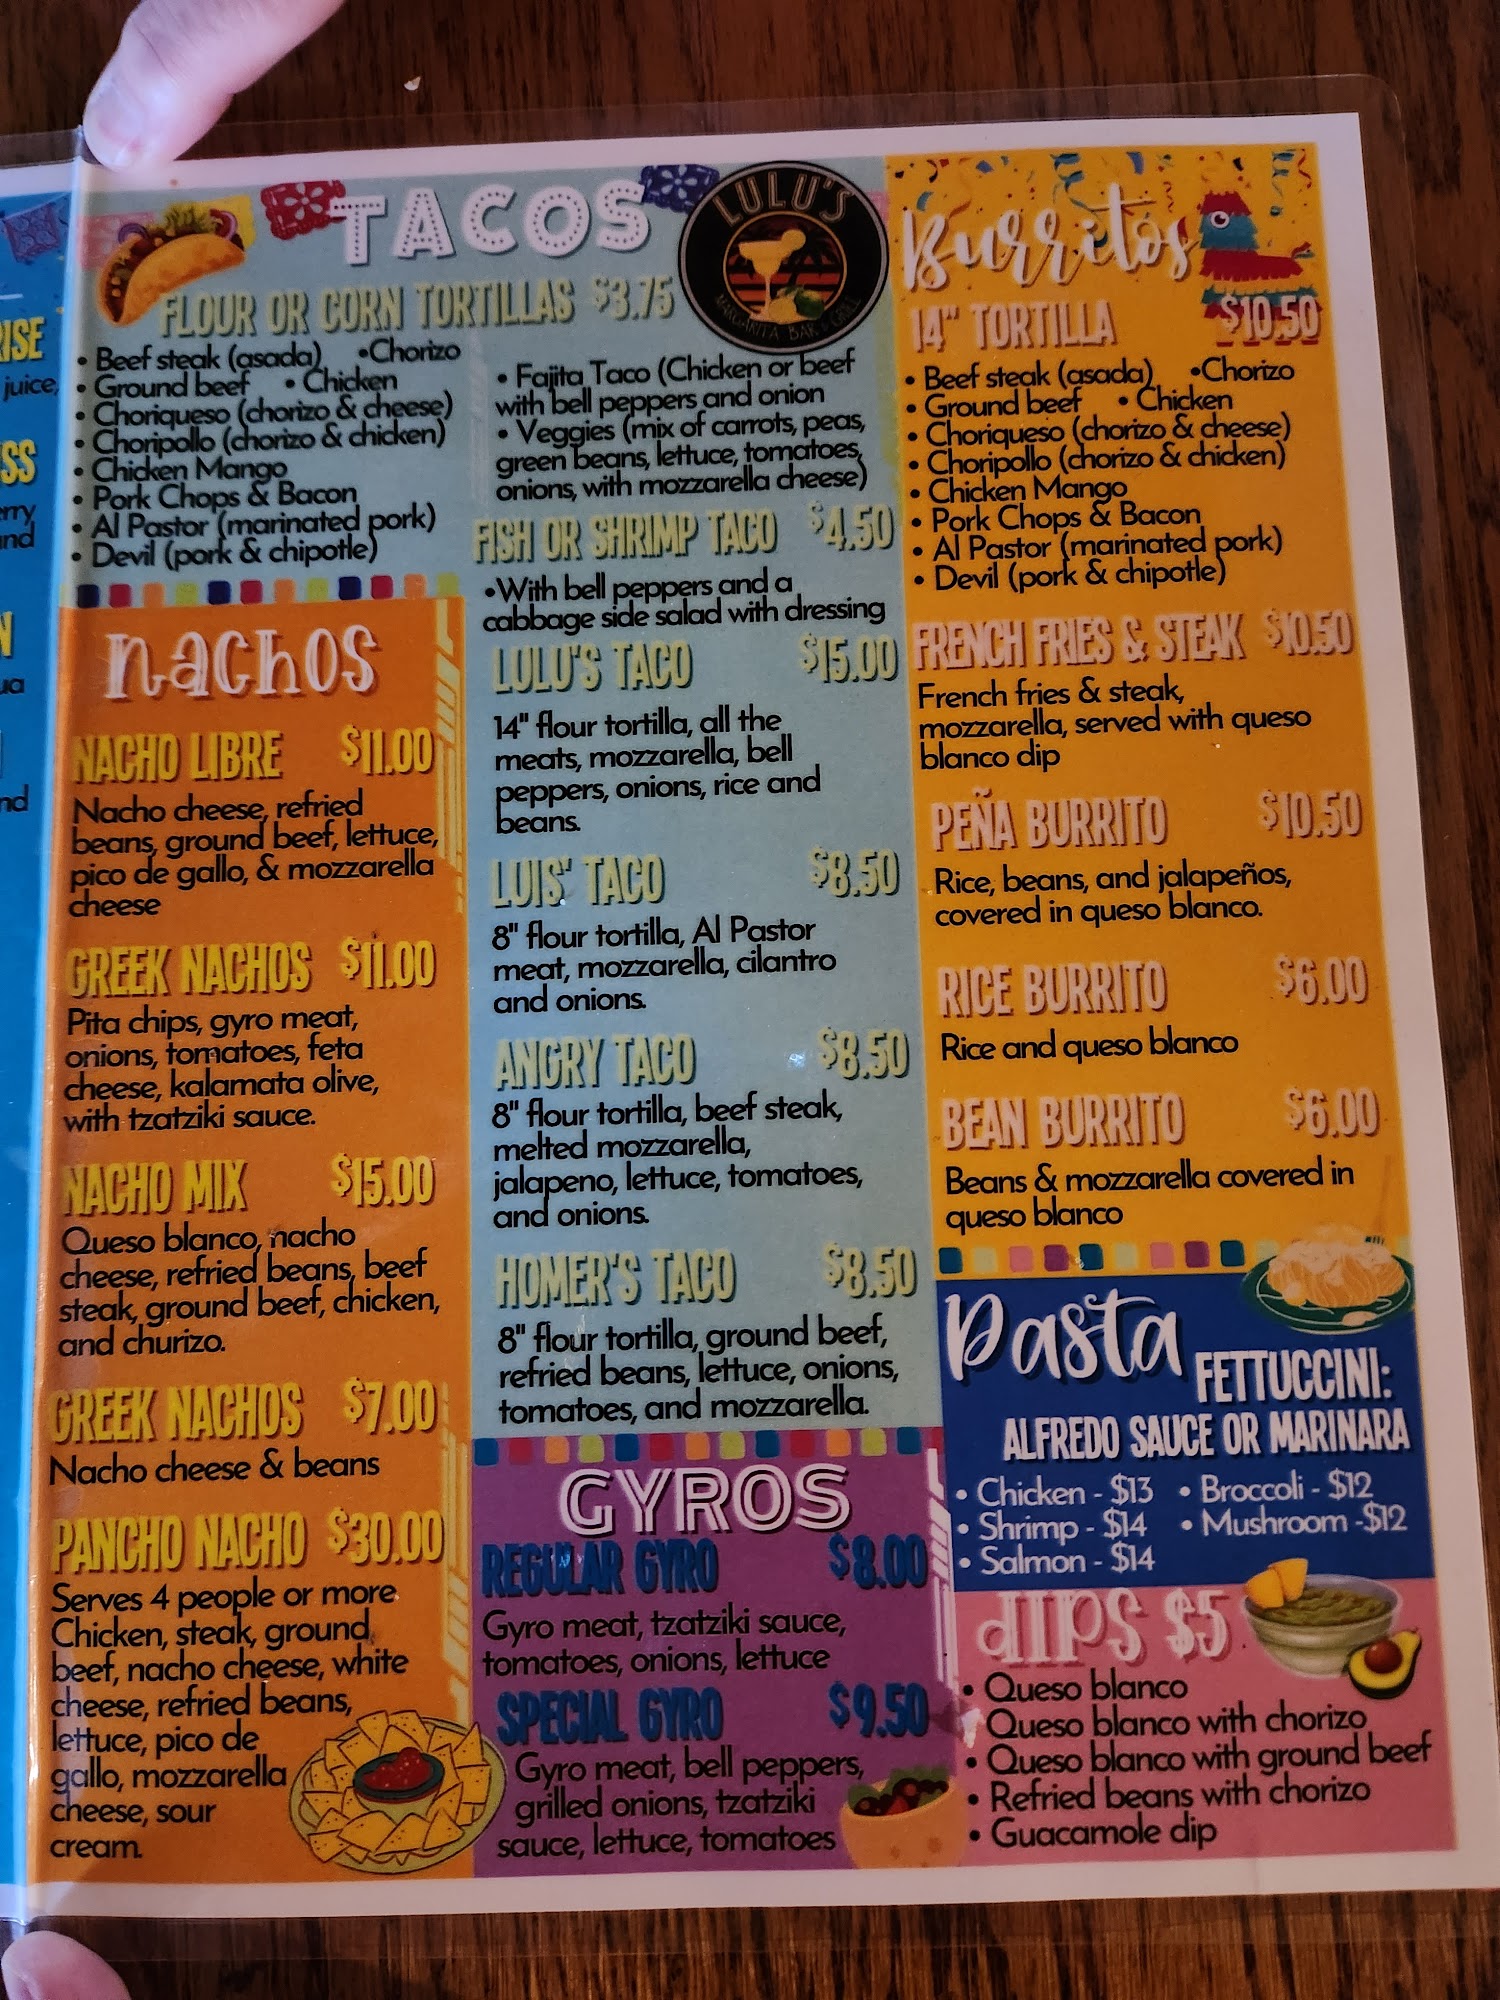 RISE
juice,
SS
erry
and
N
ua
nd
TACOS
FLOUR OR CORN TORTILLAS $3.75
• Beef steak (asada) •Chorizo
• Ground beef • Chicken
• Choriqueso (chorizo & cheese)
• Choripollo (chorizo & chicken)
• Chicken Mango
• Pork Chops & Bacon
• Al Pastor (marinated pork)
• Devil (pork & chipotle)
LULU'S
MARGARITA BAR & GRILL
• Fajita Taco (Chicken or beef
with bell peppers and onion
• Veggies (mix of carrots, peas,
green beans, lettuce, tomatoes,
onions, with mozzarella cheese)
FISH OR SHRIMP TACO $4.50
•With bell peppers and a
cabbage side salad with dressing
LULU'S TACO $15.00
14" flour tortilla, all the
meats, mozzarella, bell
peppers, onions, rice and
beans.
LUIS' TACO $8.50
8" flour tortilla, Al Pastor
meat, mozzarella, cilantro
and onions.
ANGRY TACO $8.50
8" flour tortilla, beef steak,
melted mozzarella,
jalapeno, lettuce, tomatoes,
and onions.
HOMER'S TACO $8.50
8" flour tortilla, ground beef,
refried beans, lettuce, onions,
tomatoes, and mozzarella.
nachos
NACHO LIBRE $11.00
Nacho cheese, refried
beans, ground beef, lettuce,
pico de gallo, & mozzarella
cheese
GREEK NACHOS $11.00
Pita chips, gyro meat,
onions, tomatoes, feta
cheese, kalamata olive,
with tzatziki sauce.
NACHO MIX $15.00
Queso blanco, nacho
cheese, refried beans, beef
steak, ground beef, chicken,
and churizo.
GREEK NACHOS $7.00
Nacho cheese & beans
PANCHO NACHO $30.00
Serves 4 people or more
Chicken, steak, ground
beef, nacho cheese, white
cheese, refried beans,
lettuce, pico de
gallo, mozzarella
cheese, sour
cream.
GYROS
REGULAR GYRO $8.00
Gyro meat, tzatziki sauce,
tomatoes, onions, lettuce
SPECIAL GYRO $9.50
Gyro meat, bell peppers,
grilled onions, tzatziki
sauce, lettuce, tomatoes
Burritos
14" TORTILLA $10.50
• Beef steak (asada) •Chorizo
• Ground beef • Chicken
• Choriqueso (chorizo & cheese)
• Choripollo (chorizo & chicken)
• Chicken Mango
• Pork Chops & Bacon
• Al Pastor (marinated pork)
• Devil (pork & chipotle)
FRENCH FRIES & STEAK $10.50
French fries & steak,
mozzarella, served with queso
blanco dip
PEÑA BURRITO $10.50
Rice, beans, and jalapeños,
covered in queso blanco.
RICE BURRITO $6.00
Rice and queso blanco
BEAN BURRITO $6.00
Beans & mozzarella covered in
queso blanco
Pasta
FETTUCCINI:
ALFREDO SAUCE OR MARINARA
• Chicken - $13 • Broccoli - $12
• Shrimp - $14 • Mushroom -$12
• Salmon - $14
dIPS $5
• Queso blanco
Queso blanco with chorizo
• Queso blanco with ground beef
• Refried beans with chorizo
• Guacamole dip